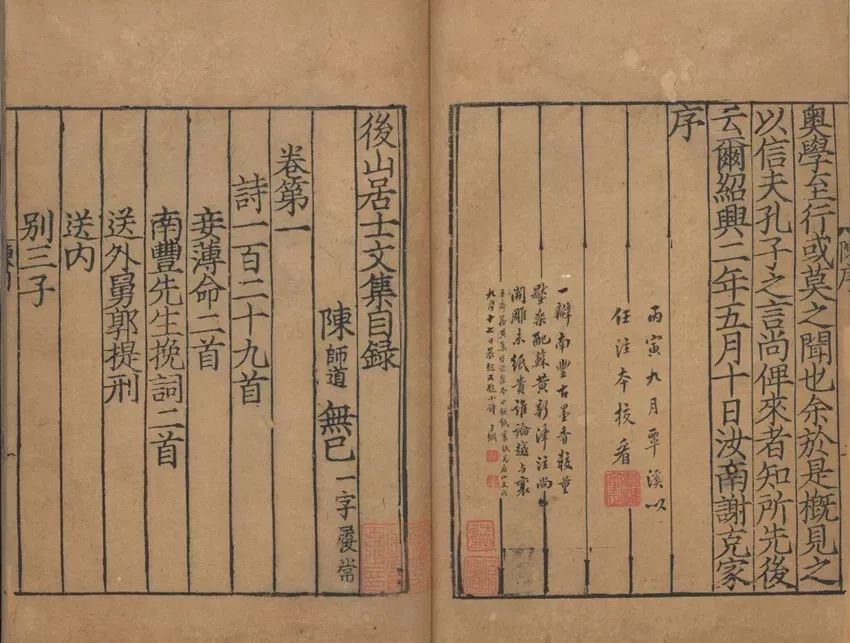 奧學至行或莫之聞也余於是槪見之
以信夫孔子之言尚俾來者知所先後
云爾紹興二年五月十日汝南謝克家
序
丙寅九月覃溪以
任注本校看
一瓣南豐古墨香校量
開雕未紙貴誰論越與襄
後山居士文集目錄
陳師道無已一字履常
卷第一
詩一百二十九首
妾薄命二首
南豐先生挽詞二首
送外舅郭提刑
送内
别三子